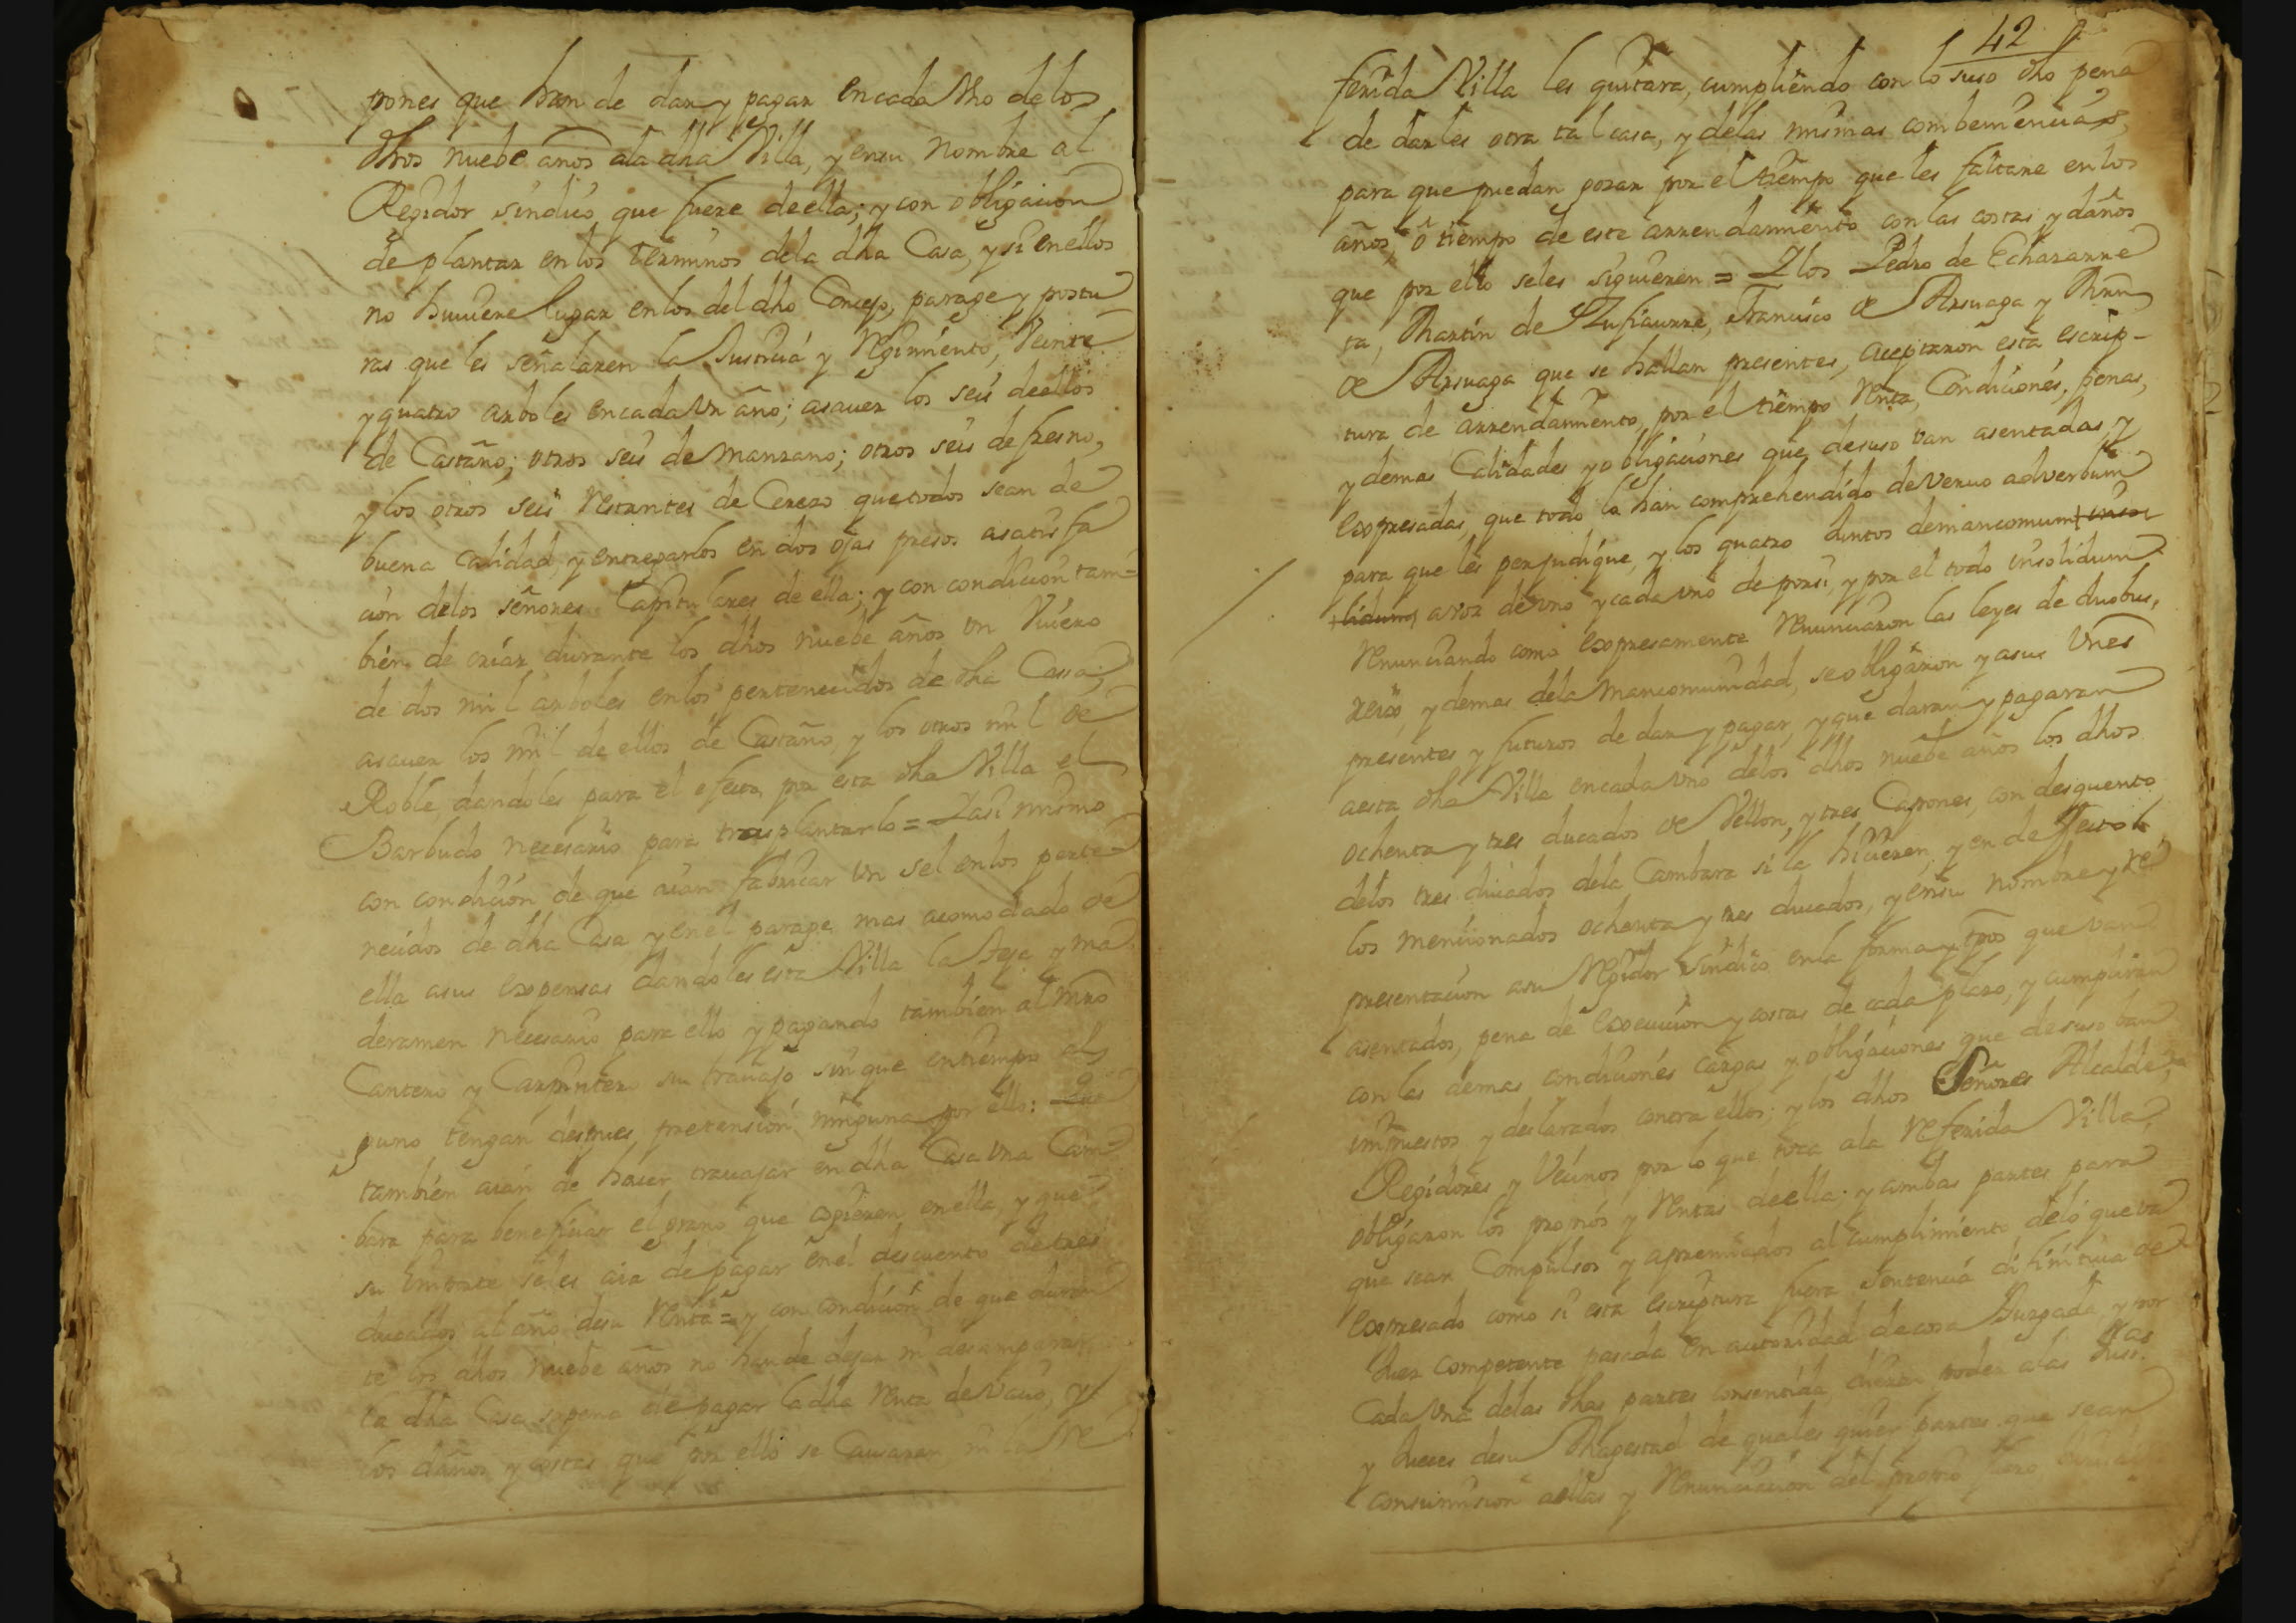 pones que han de dar y pagar en cada Vno de los
dhos nuebe años ala dha Villa, y ensu nombre al
Regidor sindico que fuere deella; y con obligacion
de plantar en los terminos dela dha Casa, y si enellos
no huuiere lugar en los del dho Concejo, parage y postu
ras que les señalaren la Justicia y Regimiento, Veinte
y quatro arboles encada Vn año; asauer los seis deellos
de Castaño; otros seis de manzano; otros seis de fresno,
y los otros seis restantes de Cerezo que todos sean de
buena calidad, y entregarlos en dos ojas presos asatisfa
cion delos señores Capitulares de ella; y con condicion tam-
bien de criar durante los dhos nuebe años vn Viuero
de dos mil arboles en los pertenecidos de dha Cassa;
asauer los mil de ellos de Castaño, y los otros mil de
Roble, dandoles para el efecto por esta dha Villa el
Barbudo necesario para trasplantarlo = Yasi mismo
con condicion de que aian fabricar vn sel en los perte-
necidos de dha Casa y en el parage mas acomodado de
ella asus expensas dandoles esta Villa la teja y ma
deramen necesario para ello y pagando tambien al Mro
Cantero y Carpintero su trauajo sinque entiempo al
guno tengan despues pretension ninguna por ello: Que
tambien aian de hacer trauajar en dha Casa vna Cam-
bara para beneficiar el grano que cogieren en ella, y que
su importe seles aia de pagar en el descuento de tres
ducados al año desu Renta = y con condicion de que duran
te los dhos nuebe años no han de dejar ni desamparar
la dha Casa sopena de pagar la dha renta de vacio, y
los daños y costas que por ello se Causaren ni la Re
42
ferida Villa les quitara, cumpliendo con lo suso dho pena
de darles otra tal casa, y delas mismas combeniencias,
para que puedan gozar por el tiempo que les faltare en los
años, ô tiempo de este arrendamiento con las costas y daños
que por ello seles siguieren = Y los Pedro de Echazarre
ta, Martin de Zufiaurre, Francisco de Arsuaga y Mrn
de Arsuaga que se hallan presentes, aceptaron esta escrip-
tura de arrendamiento, por el tiempo Renta, Condiciones, penas,
y demas Calidades y obligaciones que desuso van asentadas y
expresadas, que todo lo han comprehendido deVeruo adverbum
para que les perjudique, y los quatro Juntos demancomum, insoli
lidum, avoz de vno y cada vno de porsi, y por el todo insolidum
Renunciando como expresamente Renunciaron las leyes de duobus,
rexis, y demas dela mancomunidad, se obligaron y asus Vnes
presentes y futuros de dar y pagar, y que daran y pagaran
aesta dha Villa encada vno delos dhos nuebe años los dhos
ochenta y tres ducados de Vellon, y tres Capones, con desquento
delos tres ducados dela Cambara si la hicieren, y en defecto
los mencionados ochenta y tres ducados, y ensu nombre y re
presentacion asu Regidor Sindico enla forma y tpos que van
asentados, pena de execucion y costas de cada plazo, y cumpliran
con las demas condiciones cargas y obligaciones que desuso ban
impuestos y declarados contra ellos; y los dhos Señores Alcalde,
Regidores y Vecinos por lo que toca ala Referida Villa,
obligaron los propios y Rentas deella; y ambas partes para
que sean Compulsos y apremiados al cumplimiento delo que va
expresado como si esta escriptura fuera Sentencia difinitiua de
Juez competente pasada en autoridad decosa Juzgada, y por
Cada Vna delas dhas partes consentida, dieron poder alas Jussas
y Jueces desu Magestad de quales quier partes que sean
consumision aellas y Renunciacion del propio fuero